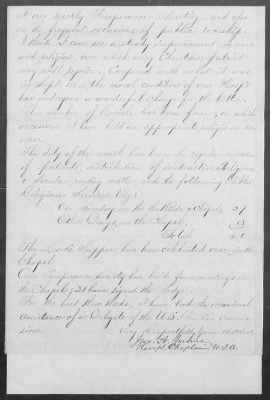 at our weekly Temperance Meeting, and also
on the frequent occasions of public worship.
I think I can see a steady improvement in morals
and religion, one which every Christian patriot
may well rejoice. Compared with what it was
in Sept. the moral condition of our Hospt
has undergone a wonderful change for the better.
The number of burials has been four; on which
occasions I have held an appropriate religious service.
The duty of the month has been the regular visitation
of patients, distribution of instructive Religious
& secular reading matter and the following Public
Religious Services Viz:
On Sunday in the Wards & Chapel, 27
Other Days, in the Chapel, 18
Total 45
The Lord's Supper has been celebrated once, in the
Chapel.
Our Temperance Society has held four meetings in
the Chapel, & 21 have signed the Pledge.
For the last three weeks, I have had the occasional
assistance of a Delegate of the U.S. Christian Commission.
Very respectfully Your obt
Hospt. Chaplain U.S.A.